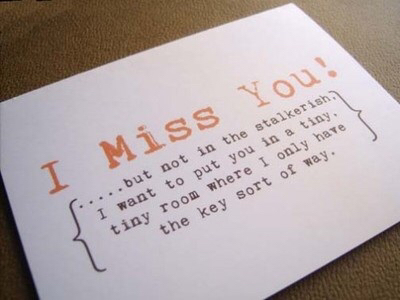 I Miss You!
.....but not in the stalkerish,
I want to put you in a tiny,
tiny room where I only have
the key sort of way.